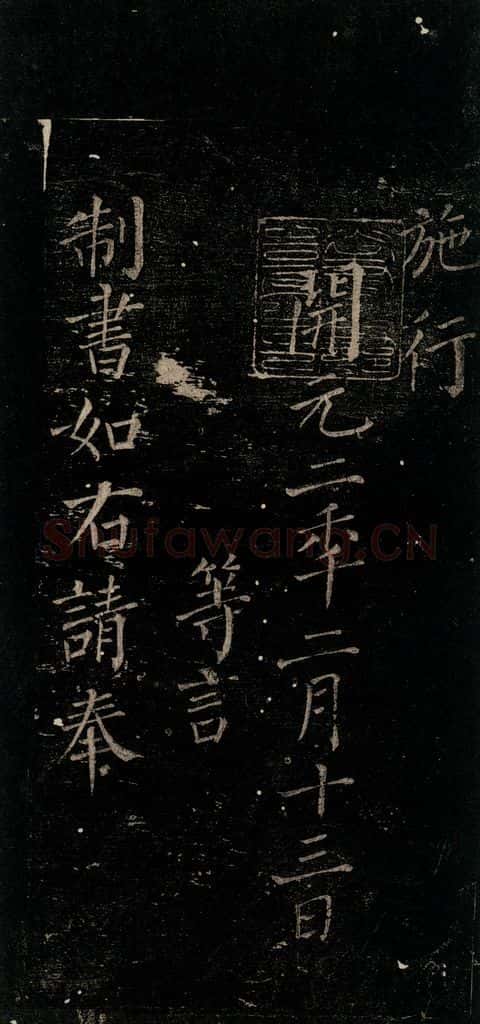 施行
開元二年二月十三日
等言
制書如右請奉
Shufawang.CN